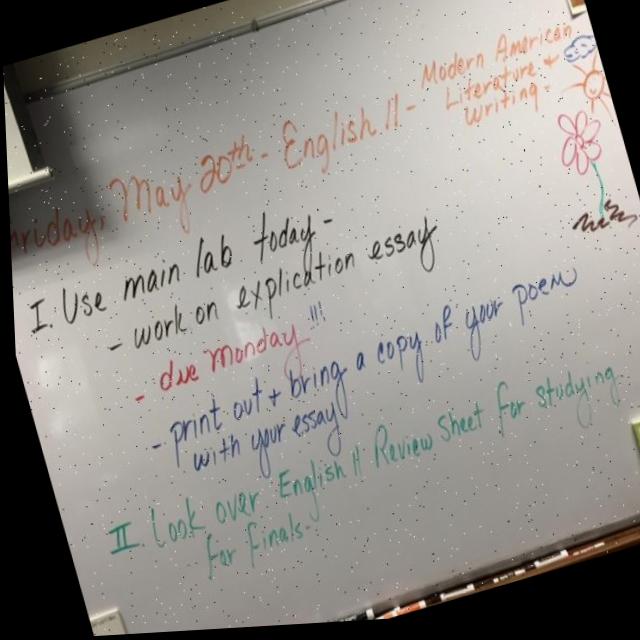 Friday, May 20th - English 11 - Modern American
Literature +
Writing -
I. Use main lab today -
- work on explication essay
- due Monday!!!
- print out + bring a copy of your poem
with your essay
II. Look over English 11 Review Sheet for studying
for finals.